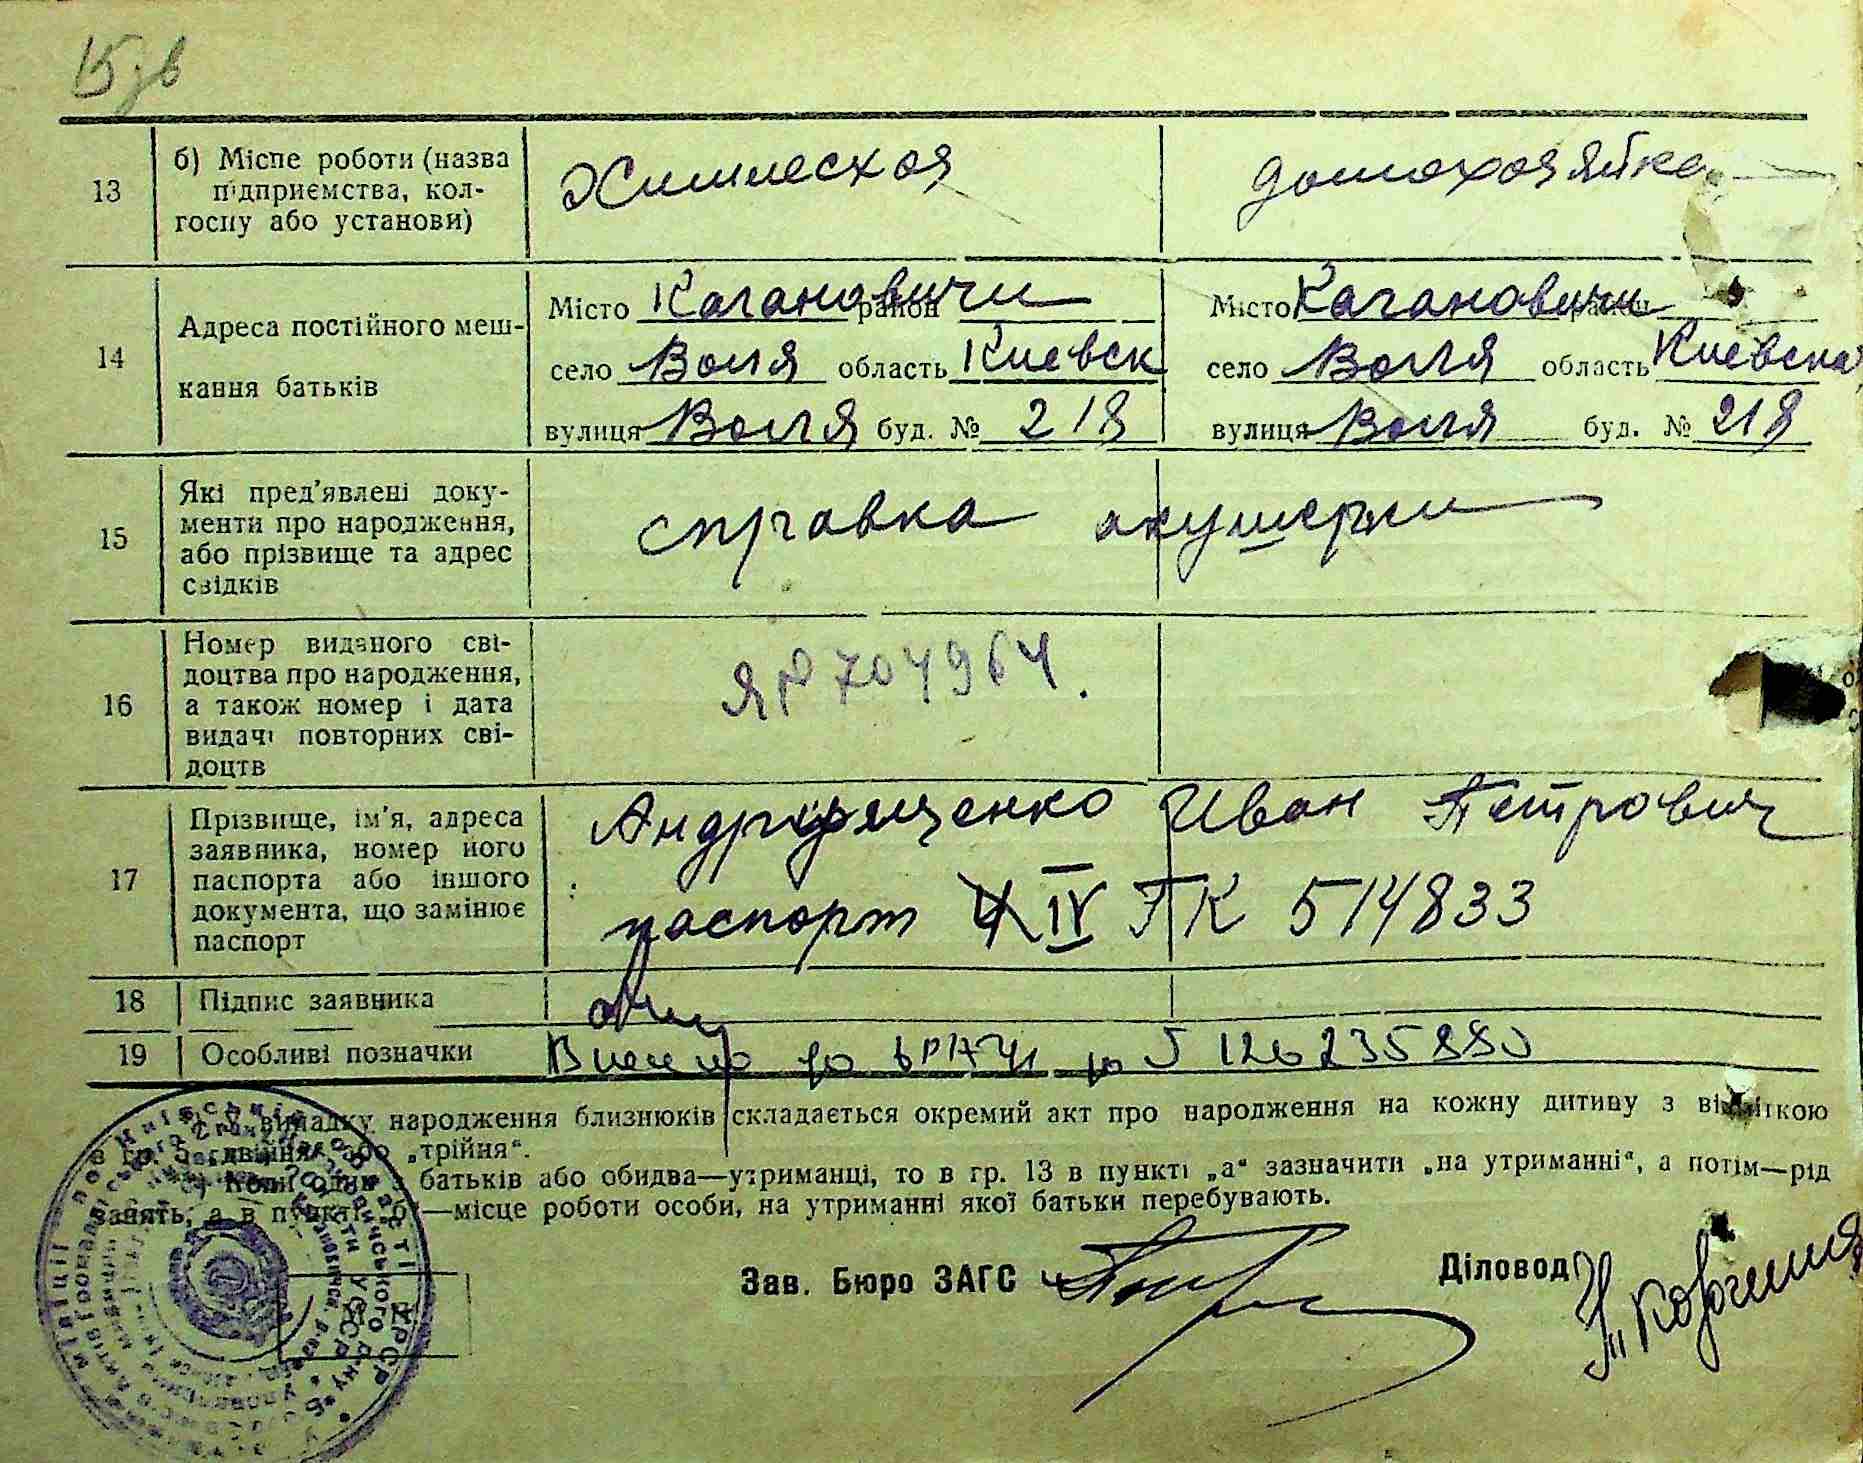 15
13
б) Місце роботи (назва
підприємства, кол-
госпу або установи)
Химическая
домохозяйка
14
Адреса постійного меш-
кання батьків
Місто Кагановичи район
село Воля область Киевск
вулиця Воля буд. № 218
Місто Кагановичи район
село Воля область Киевска
вулиця Воля буд. № 218
15
Які пред'явлені доку-
менти про народження,
або прізвище та адрес
свідків
справка акушерки
16
Номер виданого сві-
доцтва про народження,
а також номер і дата
видачі повторних сві-
доцтв
ЯР 704964.
17
Прізвище, ім'я, адреса
заявника, номер його
паспорта або іншого
документа, що замінює
паспорт
Андрущенко Иван Петрович
паспорт IV ГК 514833
18
Підпис заявника
19
Особливі позначки
У випадку народження близнюків складається окремий акт про народження на кожну дитину з відміткою
в гр. 5 „двійня“ або „трійня“.
Коли один з батьків або обидва—утриманці, то в гр. 13 в пункті „а“ зазначити „на утриманні“, а потім—рід
занять, а в пункті „б“—місце роботи особи, на утриманні якої батьки перебувають.
Зав. Бюро ЗАГС
Діловод